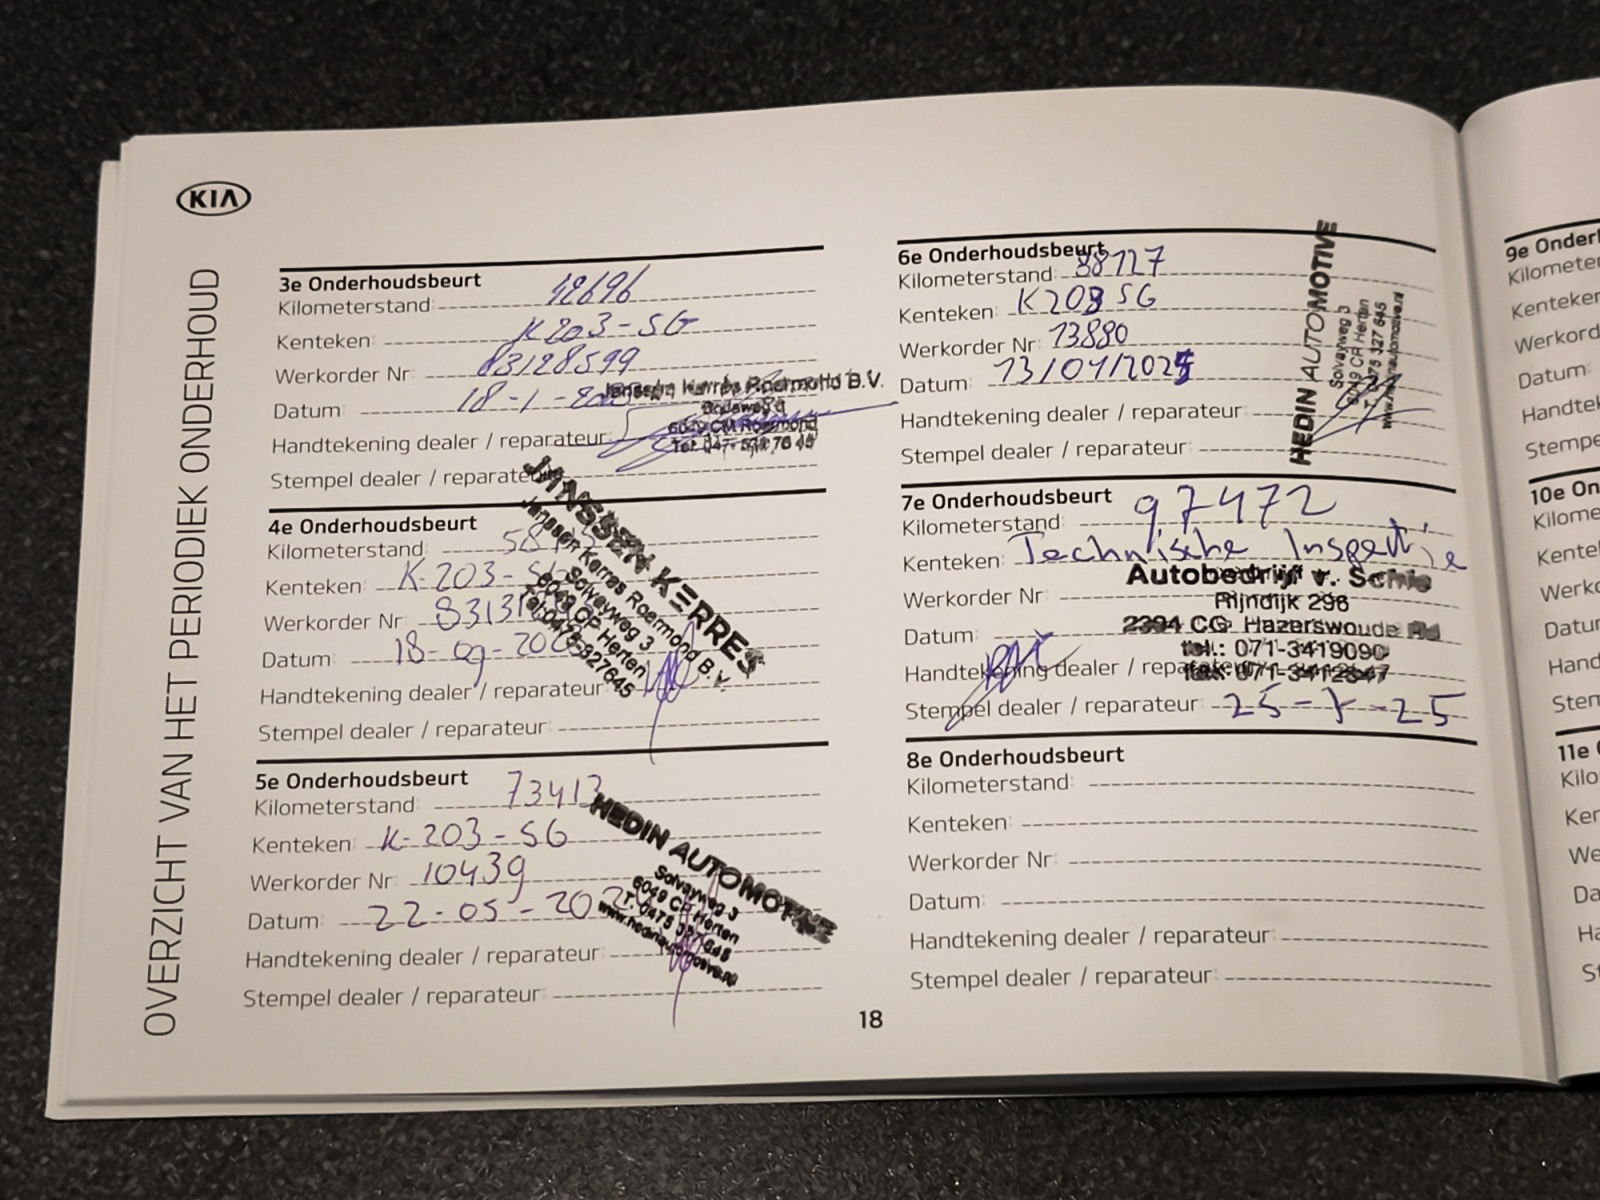 KIA
OVERZICHT VAN HET PERIODIEK ONDERHOUD
3e Onderhoudsbeurt
Kilometerstand: 42696
Kenteken: K203-SG
Werkorder Nr: 83128599
Datum: 18-1-
Handtekening dealer / reparateur:
Stempel dealer / reparateur:
Janssen Kerres Roermond B.V.
6049 CM Roermond
4e Onderhoudsbeurt
Kilometerstand:
Kenteken: K-203-SG
Werkorder Nr:
Datum: 18-09-
Handtekening dealer / reparateur:
Stempel dealer / reparateur:
JANSSEN KERRES
Janssen Kerres Roermond B.V.
Solvayweg 3
6049 CP Herten
Tel: 0475-327645
5e Onderhoudsbeurt
Kilometerstand: 73413
Kenteken: K-203-SG
Werkorder Nr: 10439
Datum: 22-05-
Handtekening dealer / reparateur:
Stempel dealer / reparateur:
HEDIN AUTOMOTIVE
Solvayweg 3
6049 CP Herten
T. 0475 327 645
www.hedinautomotive.nl
6e Onderhoudsbeurt
Kilometerstand: 88127
Kenteken: K203SG
Werkorder Nr: 13880
Datum:
Handtekening dealer / reparateur:
Stempel dealer / reparateur:
HEDIN AUTOMOTIVE
Solvayweg 3
6049 CP Herten
T. 0475 327 645
www.hedinautomotive.nl
7e Onderhoudsbeurt
Kilometerstand: 97472
Kenteken: Technische Inspectie
Werkorder Nr:
Datum:
Handtekening dealer / reparateur:
Stempel dealer / reparateur: 25-7-25
Autobedrijf v. Schie
Rijndijk 296
2394 CG Hazerswoude Rd
tel.: 071-3419090
fax: 071-3412847
8e Onderhoudsbeurt
Kilometerstand:
Kenteken:
Werkorder Nr:
Datum:
Handtekening dealer / reparateur:
Stempel dealer / reparateur:
18
9e Onder
Kilometer
Kenteken
Werkord
Datum:
Handtek
Stempe
10e On
Kilome
Kente
Werko
Datu
Hand
Sten
11e
Kilo
Ker
We
Da
Ha
St